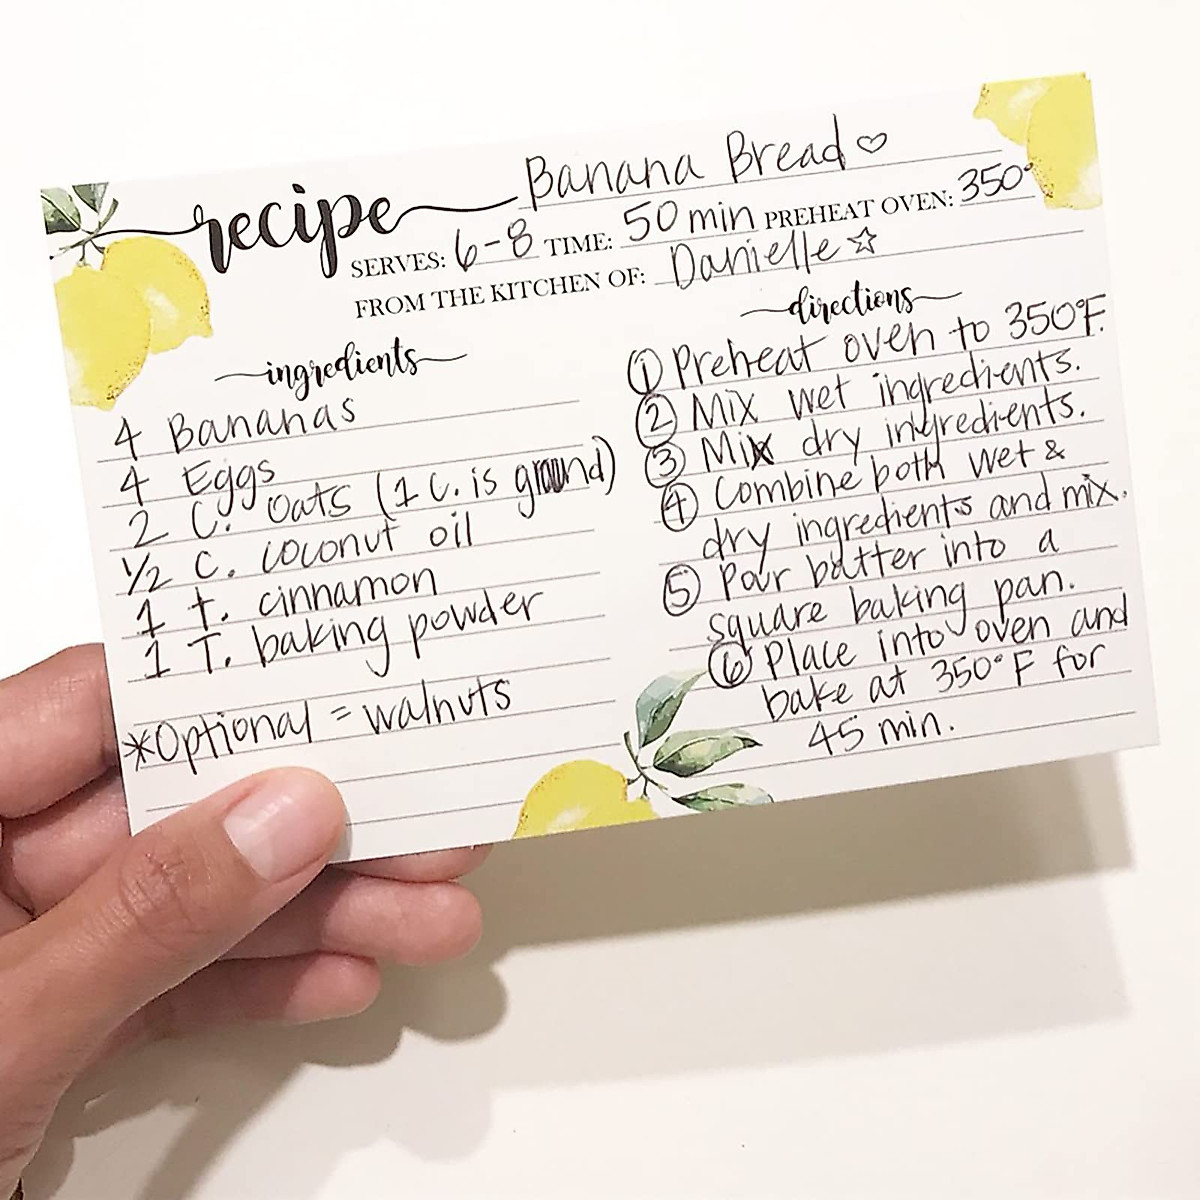 recipe Banana Bread ♡
SERVES: 6-8 TIME: 50 min PREHEAT OVEN: 350°
FROM THE KITCHEN OF: Danielle ☆
ingredients
4 Bananas
4 Eggs
2 C. Oats (1 C. is ground)
1/2 C. coconut oil
1 t. cinnamon
1 T. baking powder
*Optional = walnuts
directions
① Preheat oven to 350°F.
② Mix wet ingredients.
③ Mix dry ingredients.
④ Combine both wet &
dry ingredients and mix.
⑤ Pour batter into a
square baking pan.
⑥ Place into oven and
bake at 350°F for
45 min.